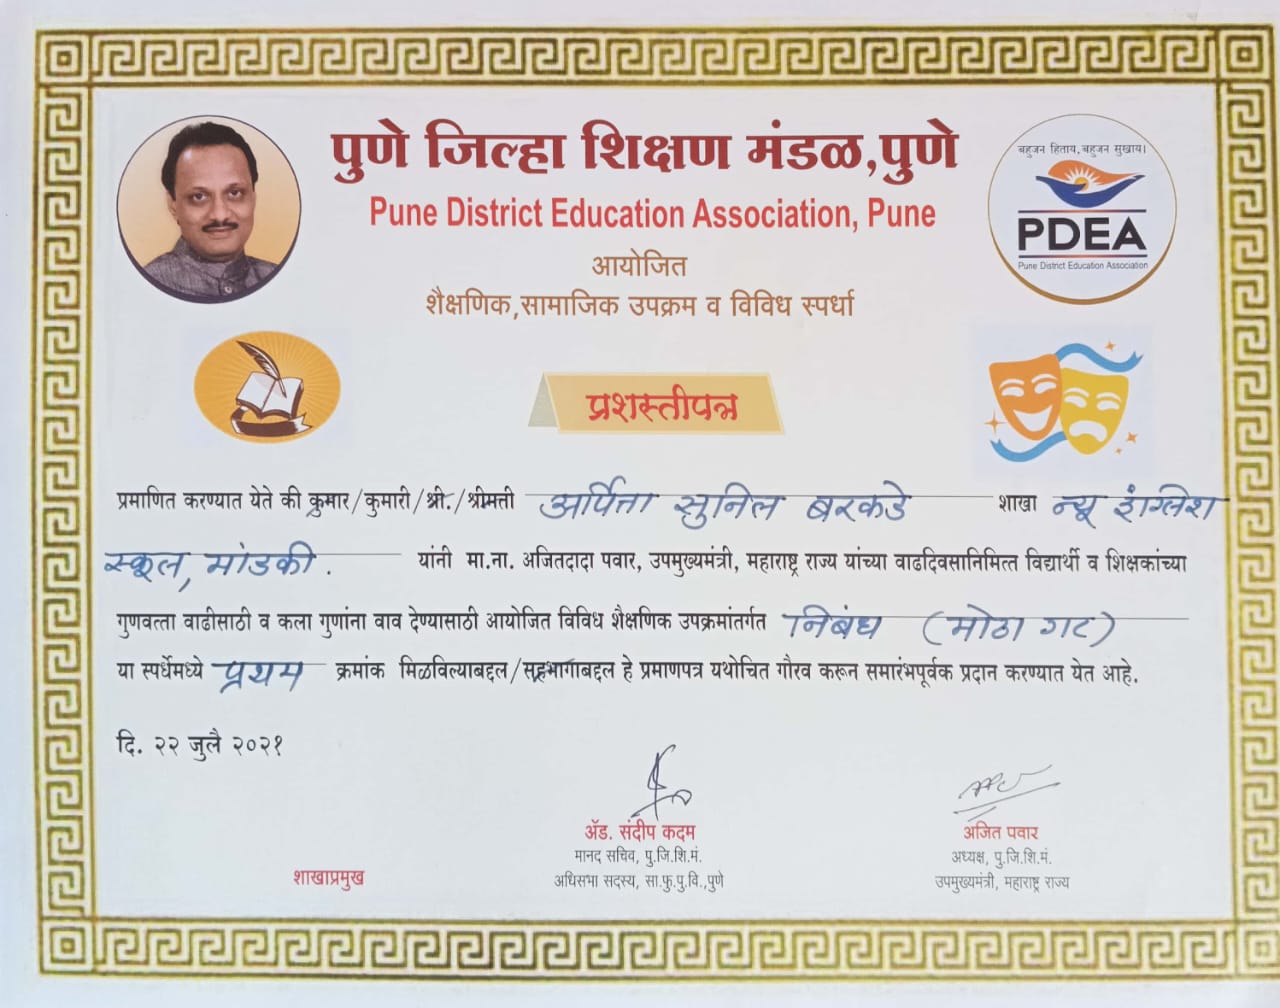 पुणे जिल्हा शिक्षण मंडळ,पुणे
Pune District Education Association, Pune
आयोजित
शैक्षणिक,सामाजिक उपक्रम व विविध स्पर्धा
बहुजन हिताय, बहुजन सुखाय।
PDEA
Pune District Education Association
प्रशस्तीपत्र
प्रमाणित करण्यात येते की कुमार/कुमारी/श्री./श्रीमती अर्पिता सुनिल बरकडे शाखा न्यू इंग्लिश
स्कूल, मांडकी. यांनी मा.ना. अजितदादा पवार, उपमुख्यमंत्री, महाराष्ट्र राज्य यांच्या वाढदिवसानिमित्त विद्यार्थी व शिक्षकांच्या
गुणवत्ता वाढीसाठी व कला गुणांना वाव देण्यासाठी आयोजित विविध शैक्षणिक उपक्रमांतर्गत निबंध (मोठा गट)
या स्पर्धेमध्ये प्रथम क्रमांक मिळविल्याबद्दल/सहभागाबद्दल हे प्रमाणपत्र यथोचित गौरव करून समारंभपूर्वक प्रदान करण्यात येत आहे.
दि. २२ जुलै २०२१
शाखाप्रमुख
अ‍ॅड. संदीप कदम
मानद सचिव, पु.जि.शि.मं.
अधिसभा सदस्य, सा.फु.पु.वि.,पुणे
अजित पवार
अध्यक्ष, पु.जि.शि.मं.
उपमुख्यमंत्री, महाराष्ट्र राज्य